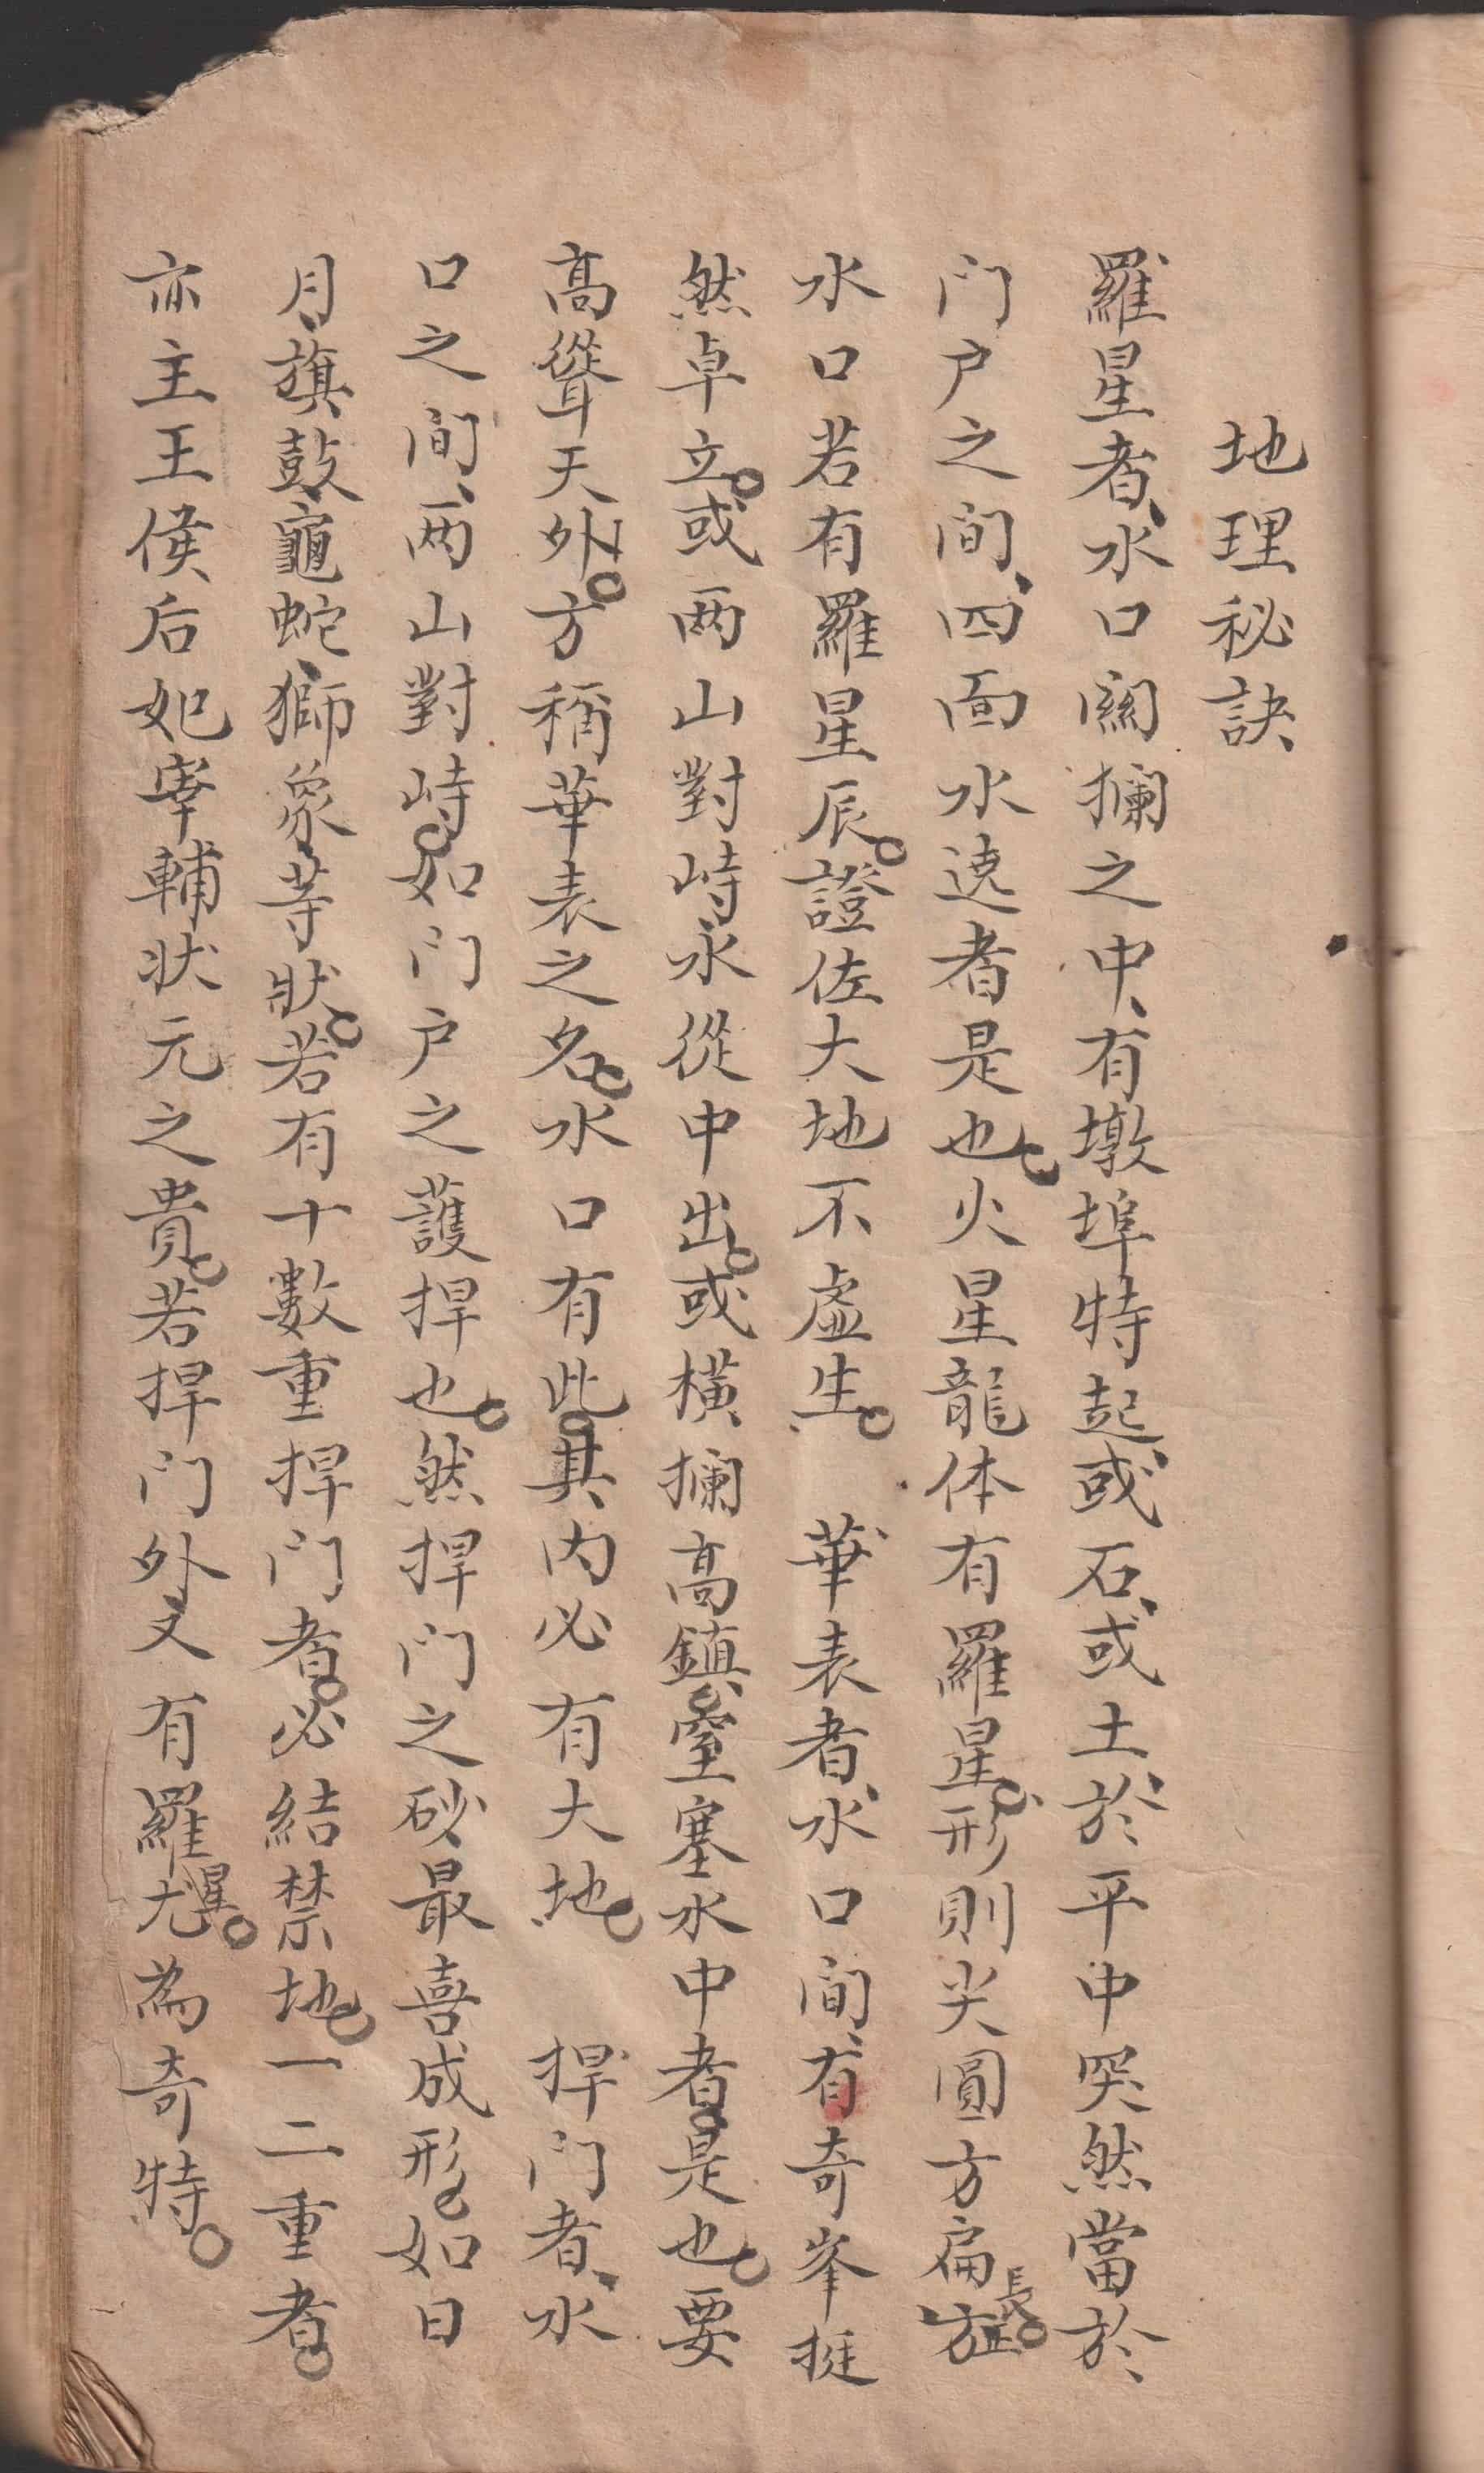 地理秘訣
羅星者、水口関攔之中、有墩埠特起、或石、或土、於平中突然當於
門户之间、四面水遶者是也。火星龍体有羅星。形則尖圓方扁長。
水口若有羅星辰。證佐大地不虚生。　華表者、水口间、有奇峯挺
然卓立。或两山對峙、水從中出。或横攔高鎮、窒塞水中者。是也。要
高聳天外。方稱華表之名。水口有此。其内必有大地。　捍门者、水
口之间、两山對峙。如门户之護捍也。然捍门之砂、最喜成形。如日
月、旗鼓、龜蛇、獅象等狀。若有十數重捍门者。必結禁地。一二重者。
亦主王侯后妃宰輔状元之貴。若捍门外、又有羅星。尤為奇特。